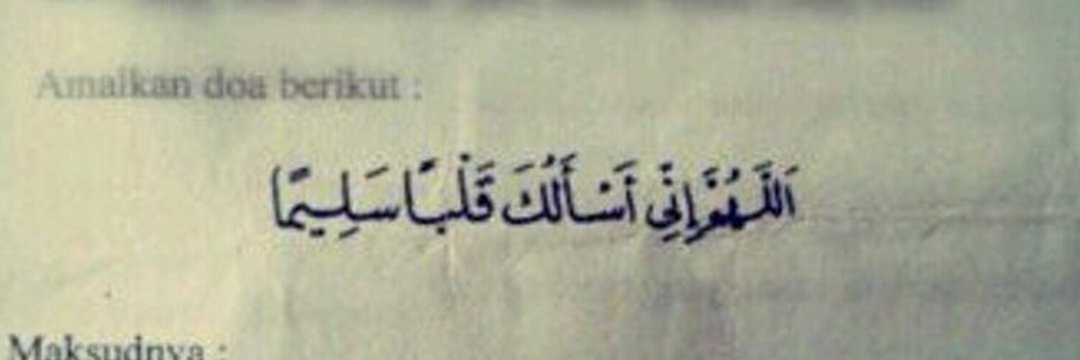 Amalkan doa berikut :
اَللَّهُمَّ إِنِّي أَسْأَلُكَ قَلْبًا سَلِيمًا
Maksudnya :